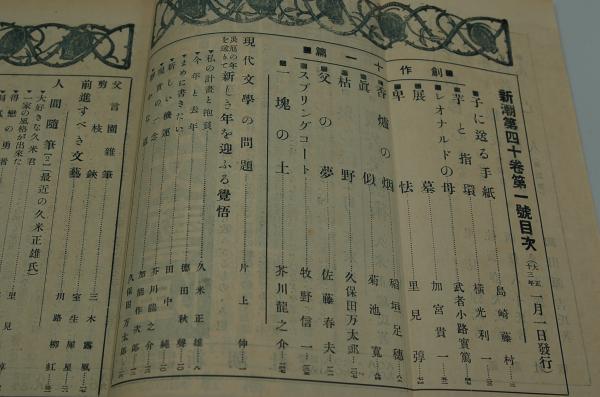 新潮第四十卷第一號目次(大正十三年)一月一日發行
■創作十一篇■
子に送る手紙 島崎藤村
芋と指環 横光利一
レオナルドの母 武者小路實篤
展墓 加宮貴一
卑怯 里見弴
香爐の烟 稲垣足穗
眞似 菊池寛
枯野 久保田万太郎
父の夢 佐藤春夫
スプリングコート 牧野信一
一塊の土 芥川龍之介
現代文學の問題 片上伸
災厄の年を送りて新しき年を迎ふる覺悟
私の計畫と抱負
今年と去年 久米正雄
まめに書きたい 德田秋聲
新しい機運 田中純
芥川龍之介
加能作次郎
久保田万太郎
父言園雜筆 三木露風
剪枝鋏 室生犀星
前進すべき文藝 川路柳虹
人間隨筆(最近の久米正雄氏)
大好きな久米君
一家の風格が出來た
里見弴